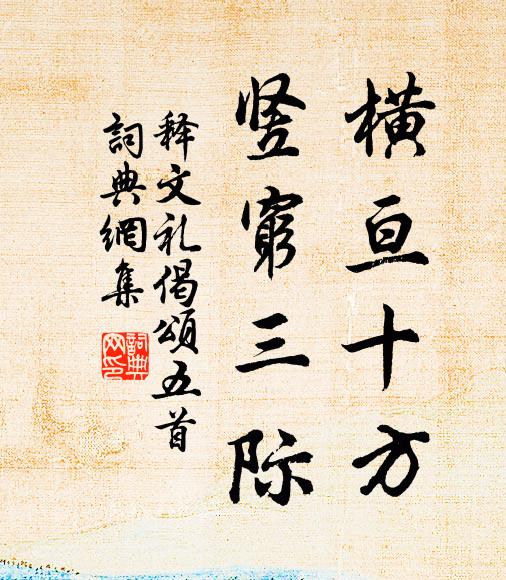 橫亘十方
竖窮三际
释文礼偈頌五首
詞典網集
詞典网印